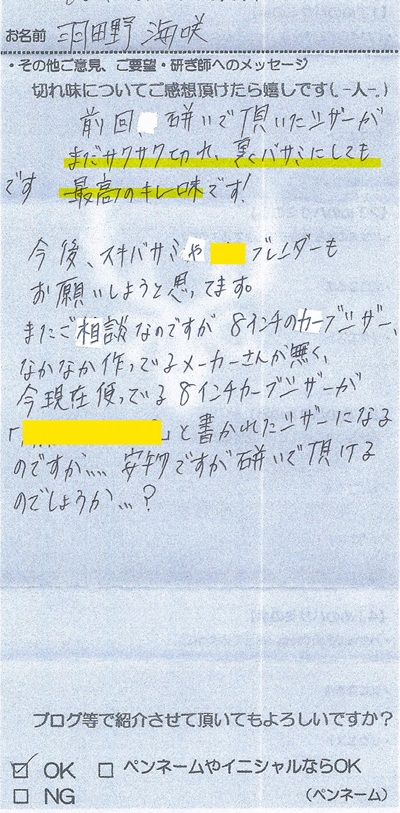 お名前 羽田野 海咲
・その他ご意見、ご要望・研ぎ師へのメッセージ
切れ味についてご感想頂けたら嬉しです(. -人-.)
前回、研いで頂いたシザーが
まだサクサク切れ、黒バサミにしても
です 最高のキレ味です!
今後、スキバサミや ブレンダーも
お願いしようと思ってます。
またご相談なのですが 8インチのカーブシザー、
なかなか作ってるメーカーさんが無く、
今現在使ってる 8インチカーブシザーが
「 」と書かれたシザーになる
のですが…… 安物ですが研いで頂ける
のでしょうか…?
ブログ等で紹介させて頂いてもよろしいですか?
☑ OK □ ペンネームやイニシャルならOK
□ NG (ペンネーム)